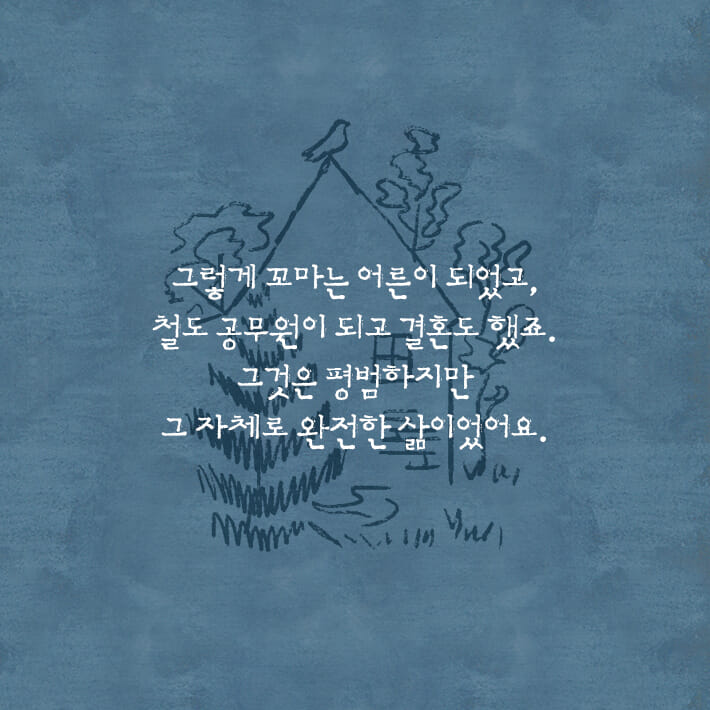 그렇게 꼬마는 어른이 되었고,
철도 공무원이 되고 결혼도 했죠.
그것은 평범하지만
그 자체로 완전한 삶이었어요.